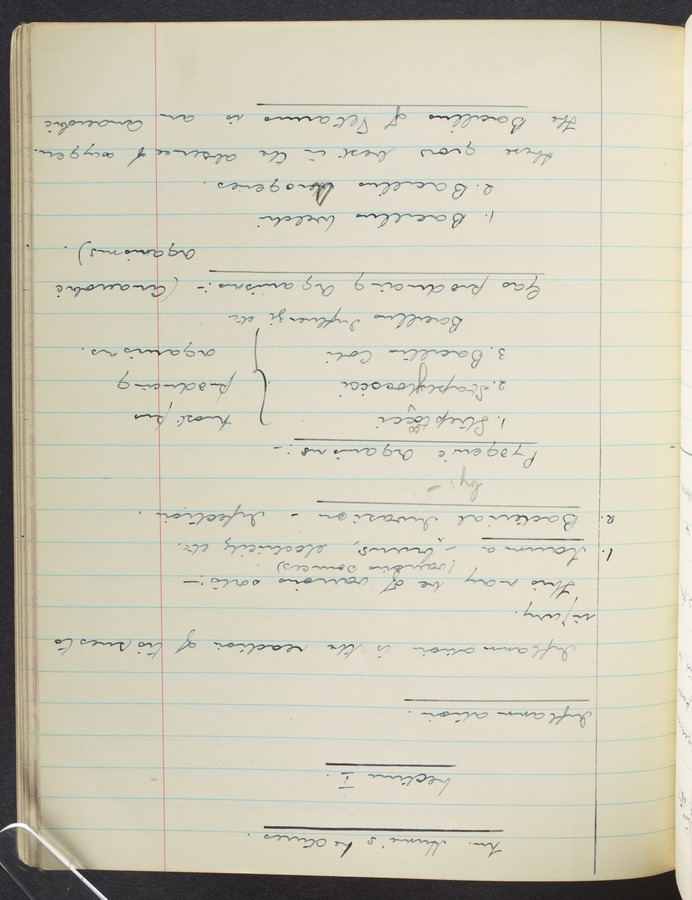 Mr. Hume's Lectures.
Lecture I.
Inflammation.
Inflammation is the reaction of tissues to
injury.
This may be of various sorts:-
(various sources)
1. Trauma - burns, electricity etc.
2. Bacterial Invasion - Infection.
by:-
Pyogenic Organisms:-
1. Streptococci } most pus
2. Staphylococci producing
3. Bacillus Coli organisms.
Bacillus Influenzi etc.
Gas producing Organisms:- (Anaerobic
organisms).
1. Bacillus Welchi
2. Bacillus Aerogenes.
these grow best in the absence of oxygen.
The Bacillus of Tetanus is an anaerobic